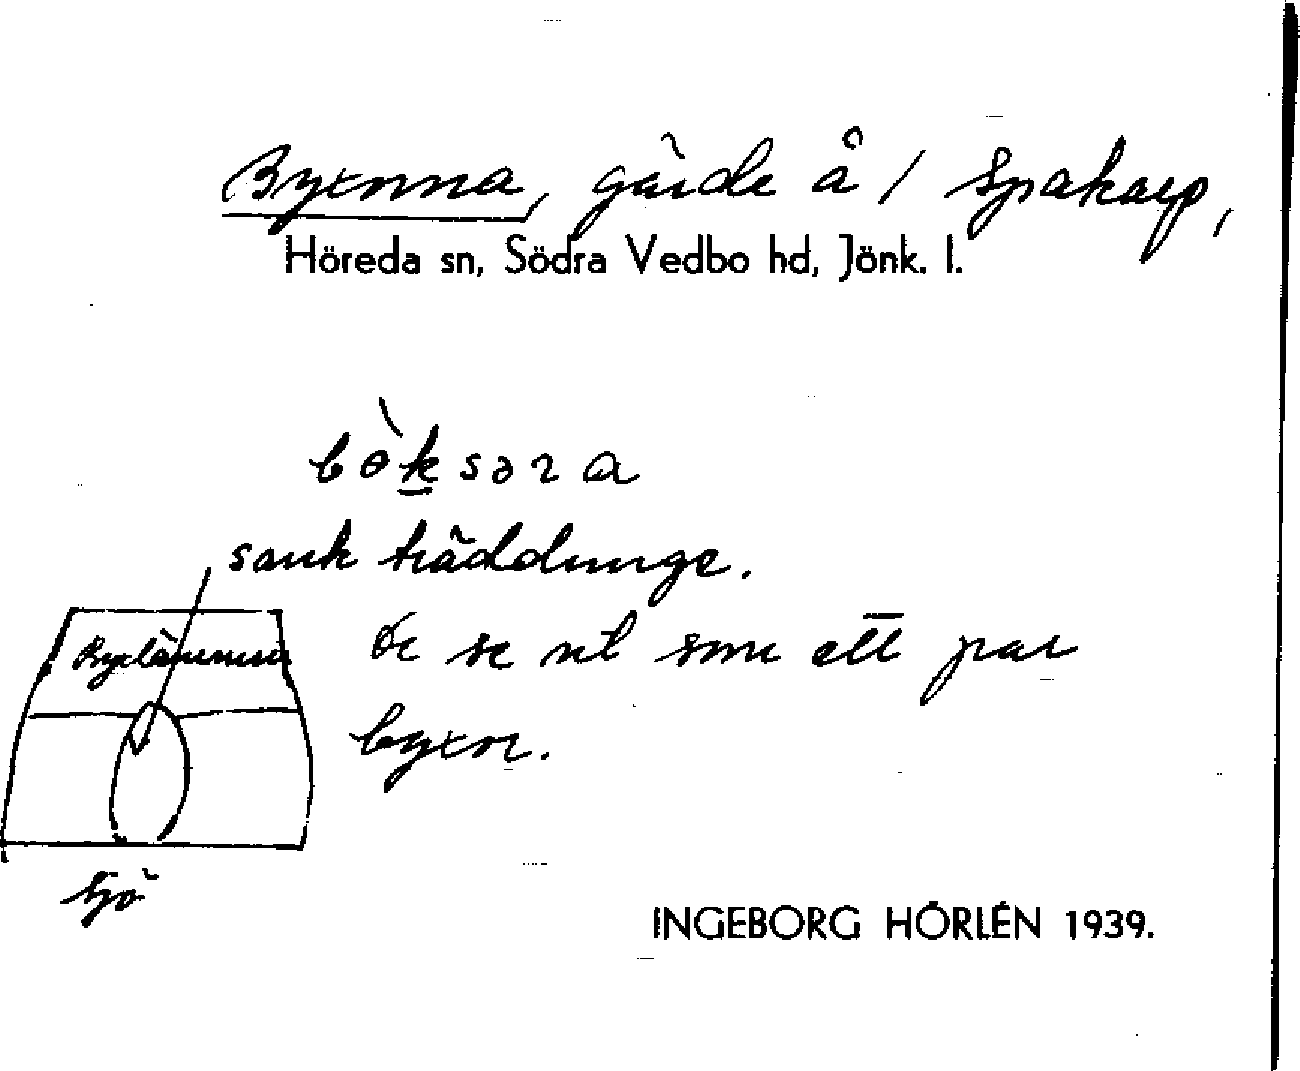 Byxorna, gärde å 1 Spakarp,
Höreda sn, Södra Vedbo hd, Jönk. l.
bø̀k̲səra
sank träddunge.
De se ut som ett par
byxor.
Sjö
INGEBORG HÖRLÉN 1939.